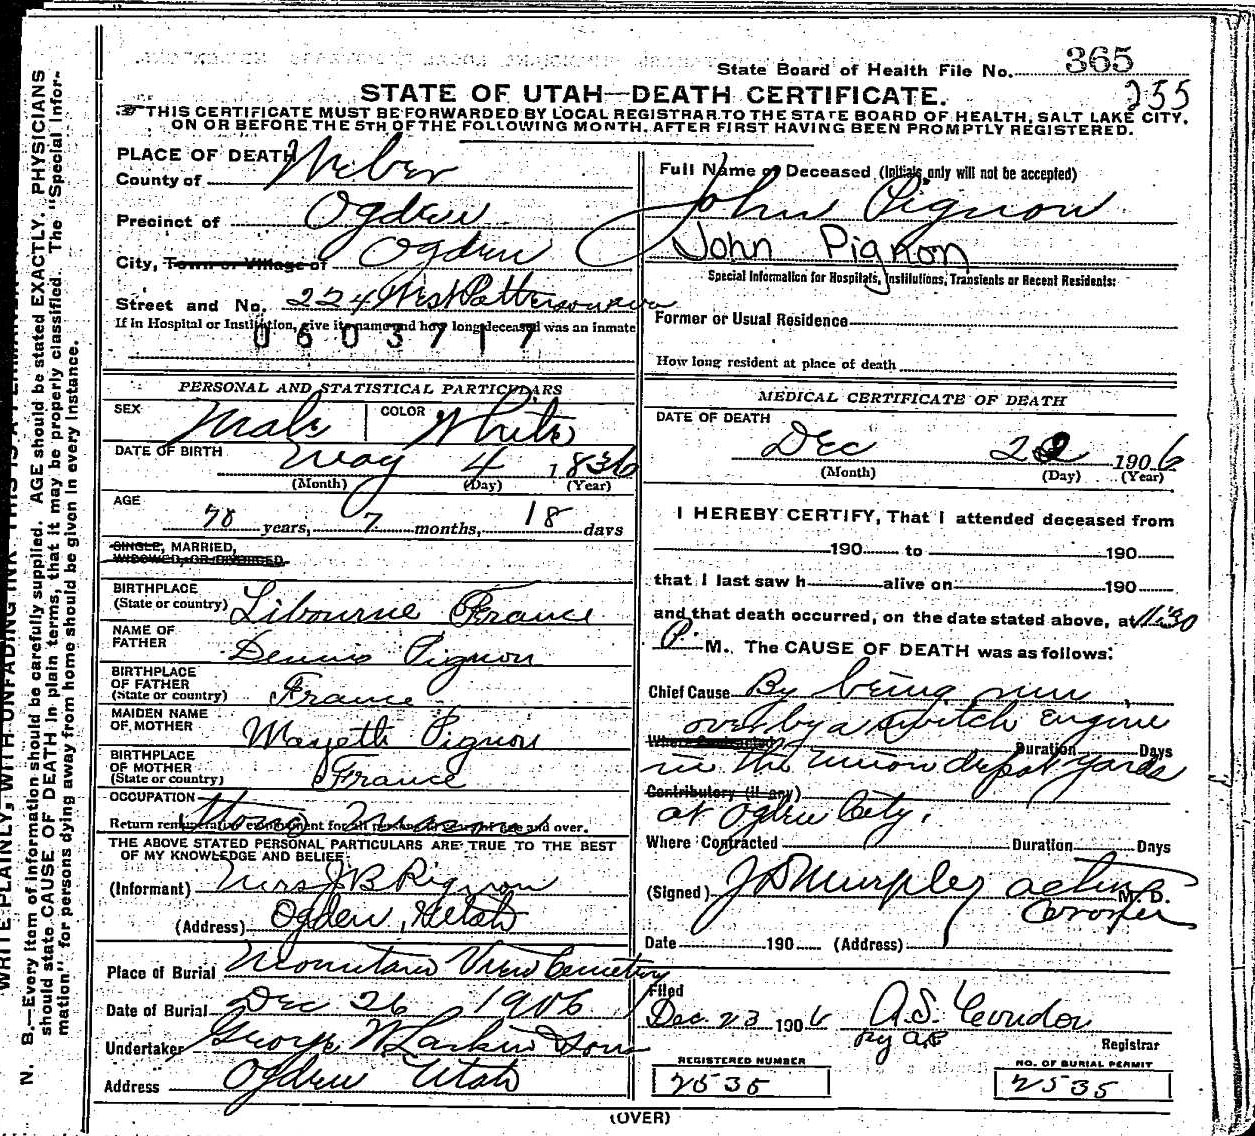 State Board of Health File No. 365
255
STATE OF UTAH—DEATH CERTIFICATE.
THIS CERTIFICATE MUST BE FORWARDED BY LOCAL REGISTRAR TO THE STATE BOARD OF HEALTH, SALT LAKE CITY,
ON OR BEFORE THE 5TH OF THE FOLLOWING MONTH, AFTER FIRST HAVING BEEN PROMPTLY REGISTERED.
PLACE OF DEATH
County of Weber
Precinct of Ogden
City, Town or Village of Ogden
Street and No. 224 West Patterson ave
If in Hospital or Institution, give its name and how long deceased was an inmate
0603717
PERSONAL AND STATISTICAL PARTICULARS
SEX Male COLOR White
DATE OF BIRTH May 4 1836
(Month) (Day) (Year)
AGE
70 years, 7 months, 18 days
SINGLE, MARRIED,
WIDOWED, OR DIVORCED
BIRTHPLACE
(State or country) Libourne France
NAME OF
FATHER Dennis Pignon
BIRTHPLACE
OF FATHER
(State or country) France
MAIDEN NAME
OF MOTHER Mayeth Pignon
BIRTHPLACE
OF MOTHER
(State or country) France
OCCUPATION Stone Mason
Return remunerative employment for all persons 10 years of age and over.
THE ABOVE STATED PERSONAL PARTICULARS ARE TRUE TO THE BEST
OF MY KNOWLEDGE AND BELIEF
(Informant) Mrs J B Pignon
(Address) Ogden, Utah
Place of Burial Mountain View Cemetery
Date of Burial Dec 26, 1906
Undertaker George W Larkin & Sons
Address Ogden Utah
Full Name of Deceased (Initials only will not be accepted)
John Pignon
John Pignon
Special Information for Hospitals, Institutions, Transients or Recent Residents:
Former or Usual Residence
How long resident at place of death
MEDICAL CERTIFICATE OF DEATH
DATE OF DEATH
Dec 22 1906
(Month) (Day) (Year)
I HEREBY CERTIFY, That I attended deceased from
190 to 190
that I last saw h alive on 190
and that death occurred, on the date stated above, at 11:30
P. M. The CAUSE OF DEATH was as follows:
Chief Cause By being run
over by a switch engine
Where Contracted Duration Days
in the union depot yards
Contributory (if any)
at Ogden City.
Where Contracted Duration Days
(Signed) J D Murphy acting M. D.
Coroner
Date 190 (Address)
Filed
Dec. 23 1906 A.S. Condon
By
Registrar
REGISTERED NUMBER
2535
NO. OF BURIAL PERMIT
2535
(OVER)
N. B.—Every item of information should be carefully supplied. AGE should be stated EXACTLY. PHYSICIANS
should state CAUSE OF DEATH in plain terms, that it may be properly classified. The "Special Infor-
mation" for persons dying away from home should be given in every instance.
WRITE PLAINLY, WITH UNFADING INK THIS IS A PERMANENT